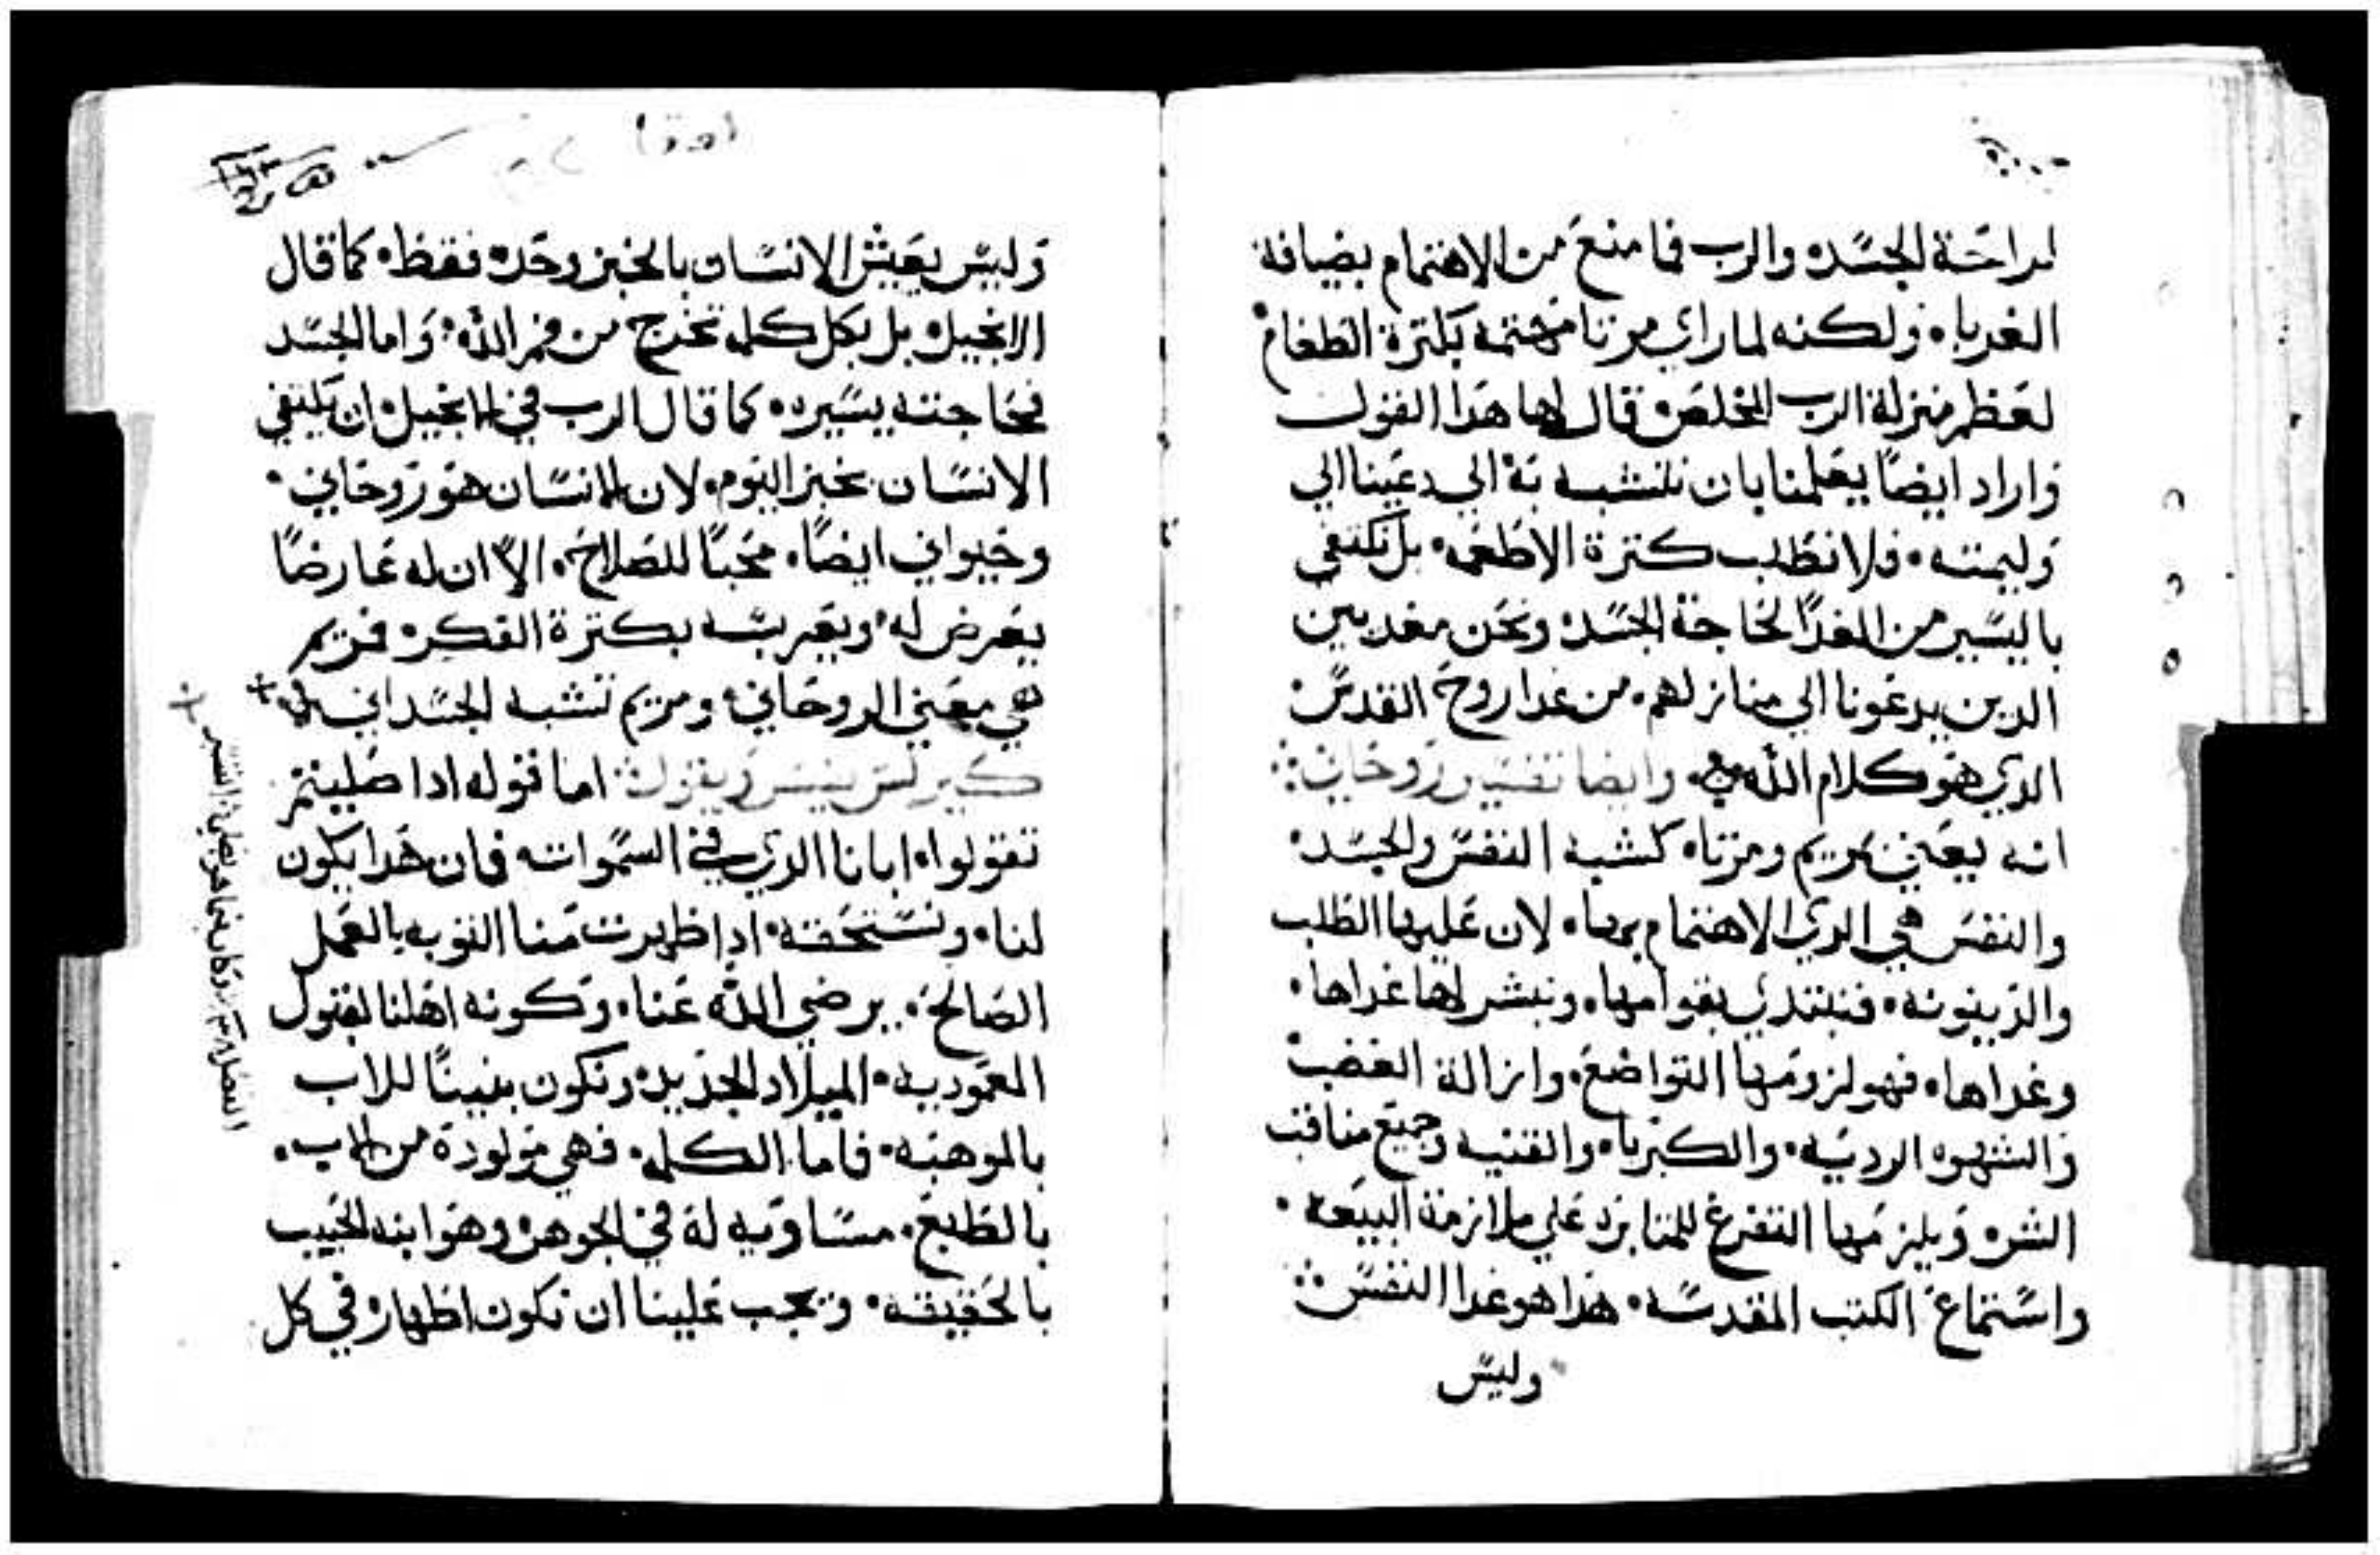 لراحة الجسد، والرب فما منع من الاهتمام بضيافة
الغربا، ولكنه لما راي مرتا مهتمه بكترة الطعام
لعظم منزلة الرب المخلص، قال لها هدا القول
واراد ايضًا يعلمنا بان نتشبه به الي دعينا الي
وليمته، فلا نطلب كترة الاطعمه، بل نكتفي
باليسير من الغدا لحاجة الجسد، ونحن مغديين
الدين يدعونا الي منازلهم، من غدا روح القدس
الدي هو كلام الله، وايضا تفسير روحاني
انه يعني مريم ومرتا، كشبه النفس والجسد
والنفس هي الدي الاهتمام بها، لان عليها الطلب
والدينونه، فنبتدي بقوامها، ونبشر لها غداها،
وغداها، فهو لزومها التواضع، وازالة الغضب
والشهوه الرديه، والكبريا، والقنيه وجميع مناقب
الشر، ويلزمها التفرغ للمتابره علي ملازمة البيعه،
واستماع الكتب المقدسه، هدا هو غدا النفس
وليس
وليس يعيش الانسان بالخبز وحده فقط، كما قال
الانجيل، بل بكل كلمه تخرج من فم الله، واما الجسد
فحاجته يسيره، كما قال الرب في الانجيل، ان يكتفي
الانسان بخبز اليوم، لان الانسان هو روحاني،
وحيواني ايضًا، محبًا للصلاح، الا ان له عارضًا
يعرض له، بكترة الفكر، فمريم
هي معني الروحاني، ومريم تشبه الجسداني
كيرلس يفسر ويقول اما قوله ادا صليتم
تقولوا، ابانا الدي في السموات، فان هدا يكون
لنا، ونستحقه، ادا ظهرت منا التوبه بالعمل
الصالح، يرضي الله عنا، وكونه اهلنا لقبول
المعموديه، الميلاد الجديد، ونكون بنينًا للاب
بالموهبه، فاما الكلمه، فهي مولودة من الاب،
بالطبع، مساويه له في الجوهر، وهو ابنه الحبيب
بالحقيقه، ويجب علينا ان نكون اطهار، في كل